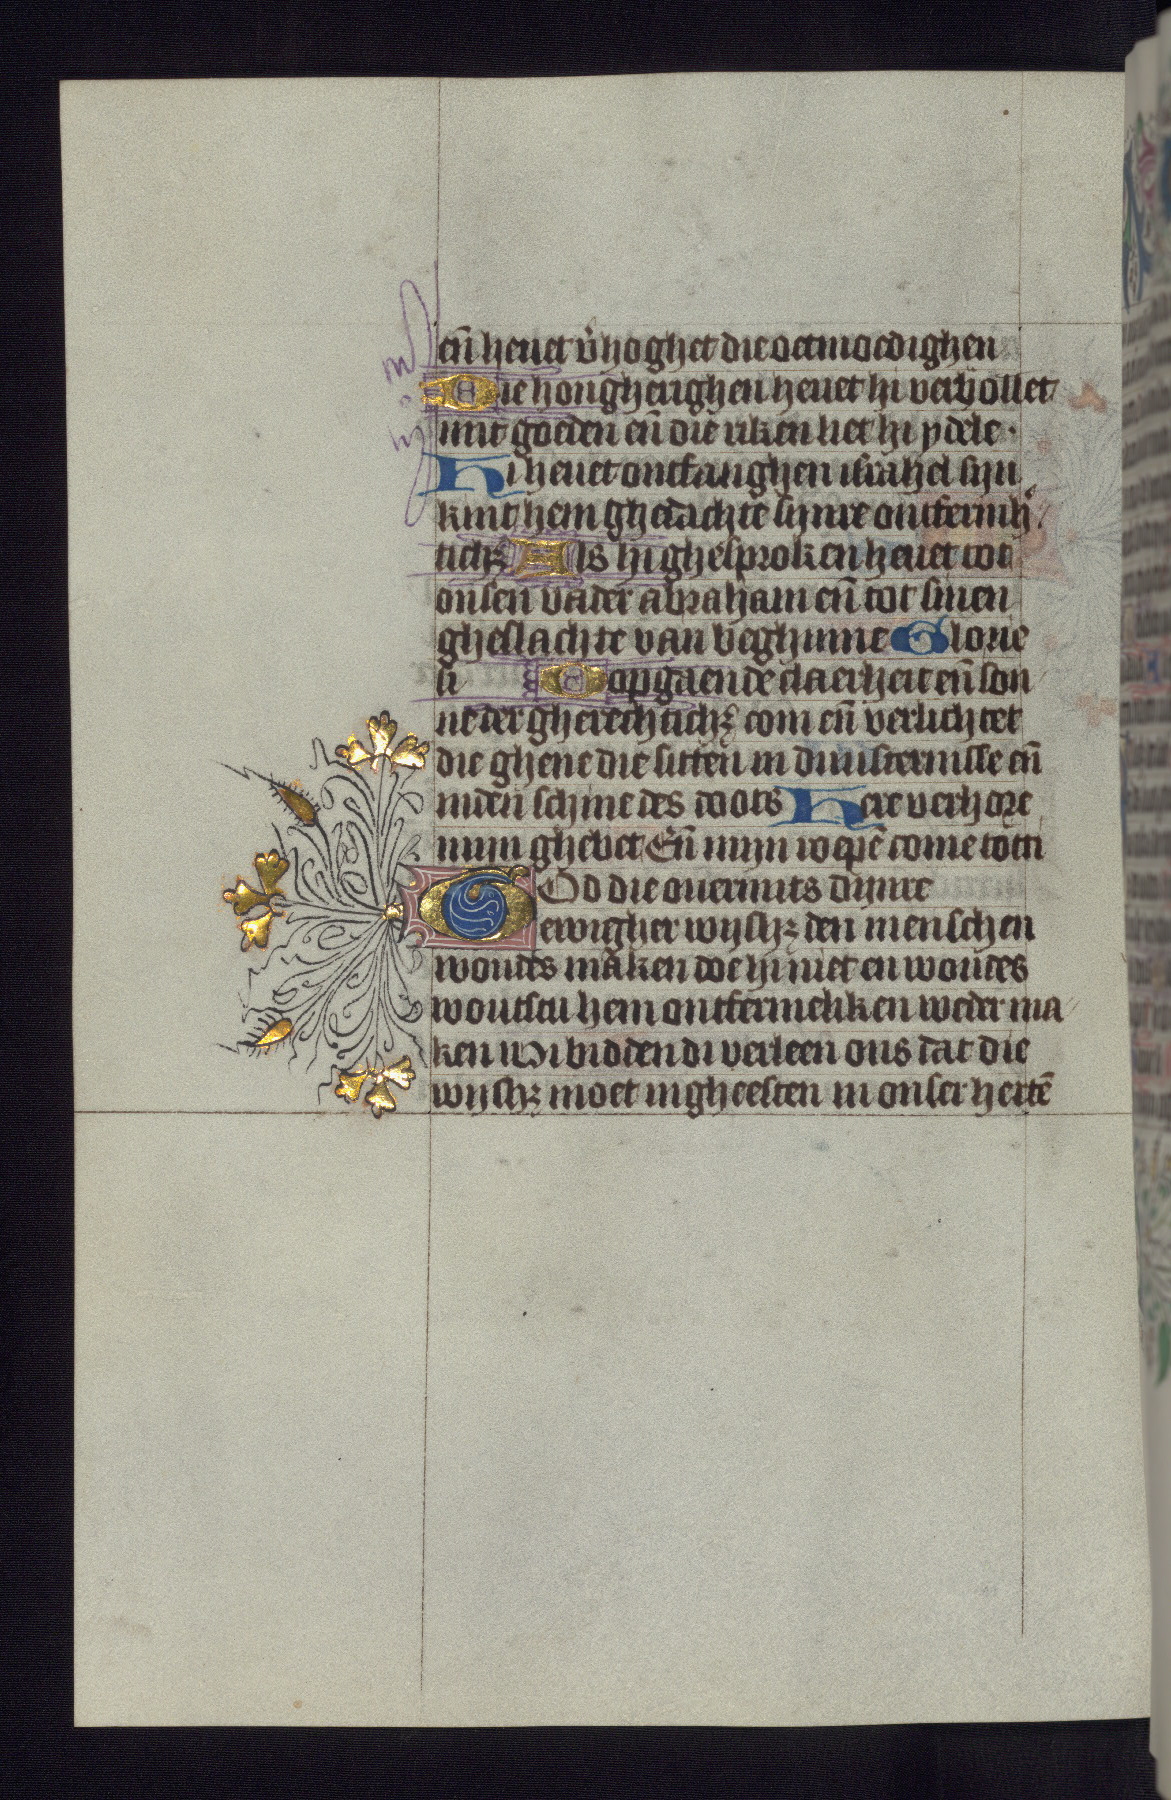 en̄ heuet v̾hoghet die oetmoedighen
Die hongherighen heuet hi veruollet
mit goeden en̄ die riken liet hi ydele·
Hi heuet ontfanghen israhel sijn
kint hem ghedachte sijnre ontfermh̾/
ticħꝫ Als hi ghesproken heuet tot
onsen vader abraham en̄ tot sinen
gheslachte van beghinne Glorie
si O opgaende claerheit en̄ son
ne der gherechtichꝫ com en̄ verlichtet
die ghene die sitten in duusternisse en̄
inden schine des doots Here verhore
mijn ghebet En̄ mijn roepē come totti
God die ouermits dijnre
ewigher wijshꝫ den menschen
woudes maken doe hi niet en woudes
woutstu hem ontfermeliken weder ma/
ken Wi bidden di verleen ons dat die
wijshꝫ moet ingheesten in onser hertē